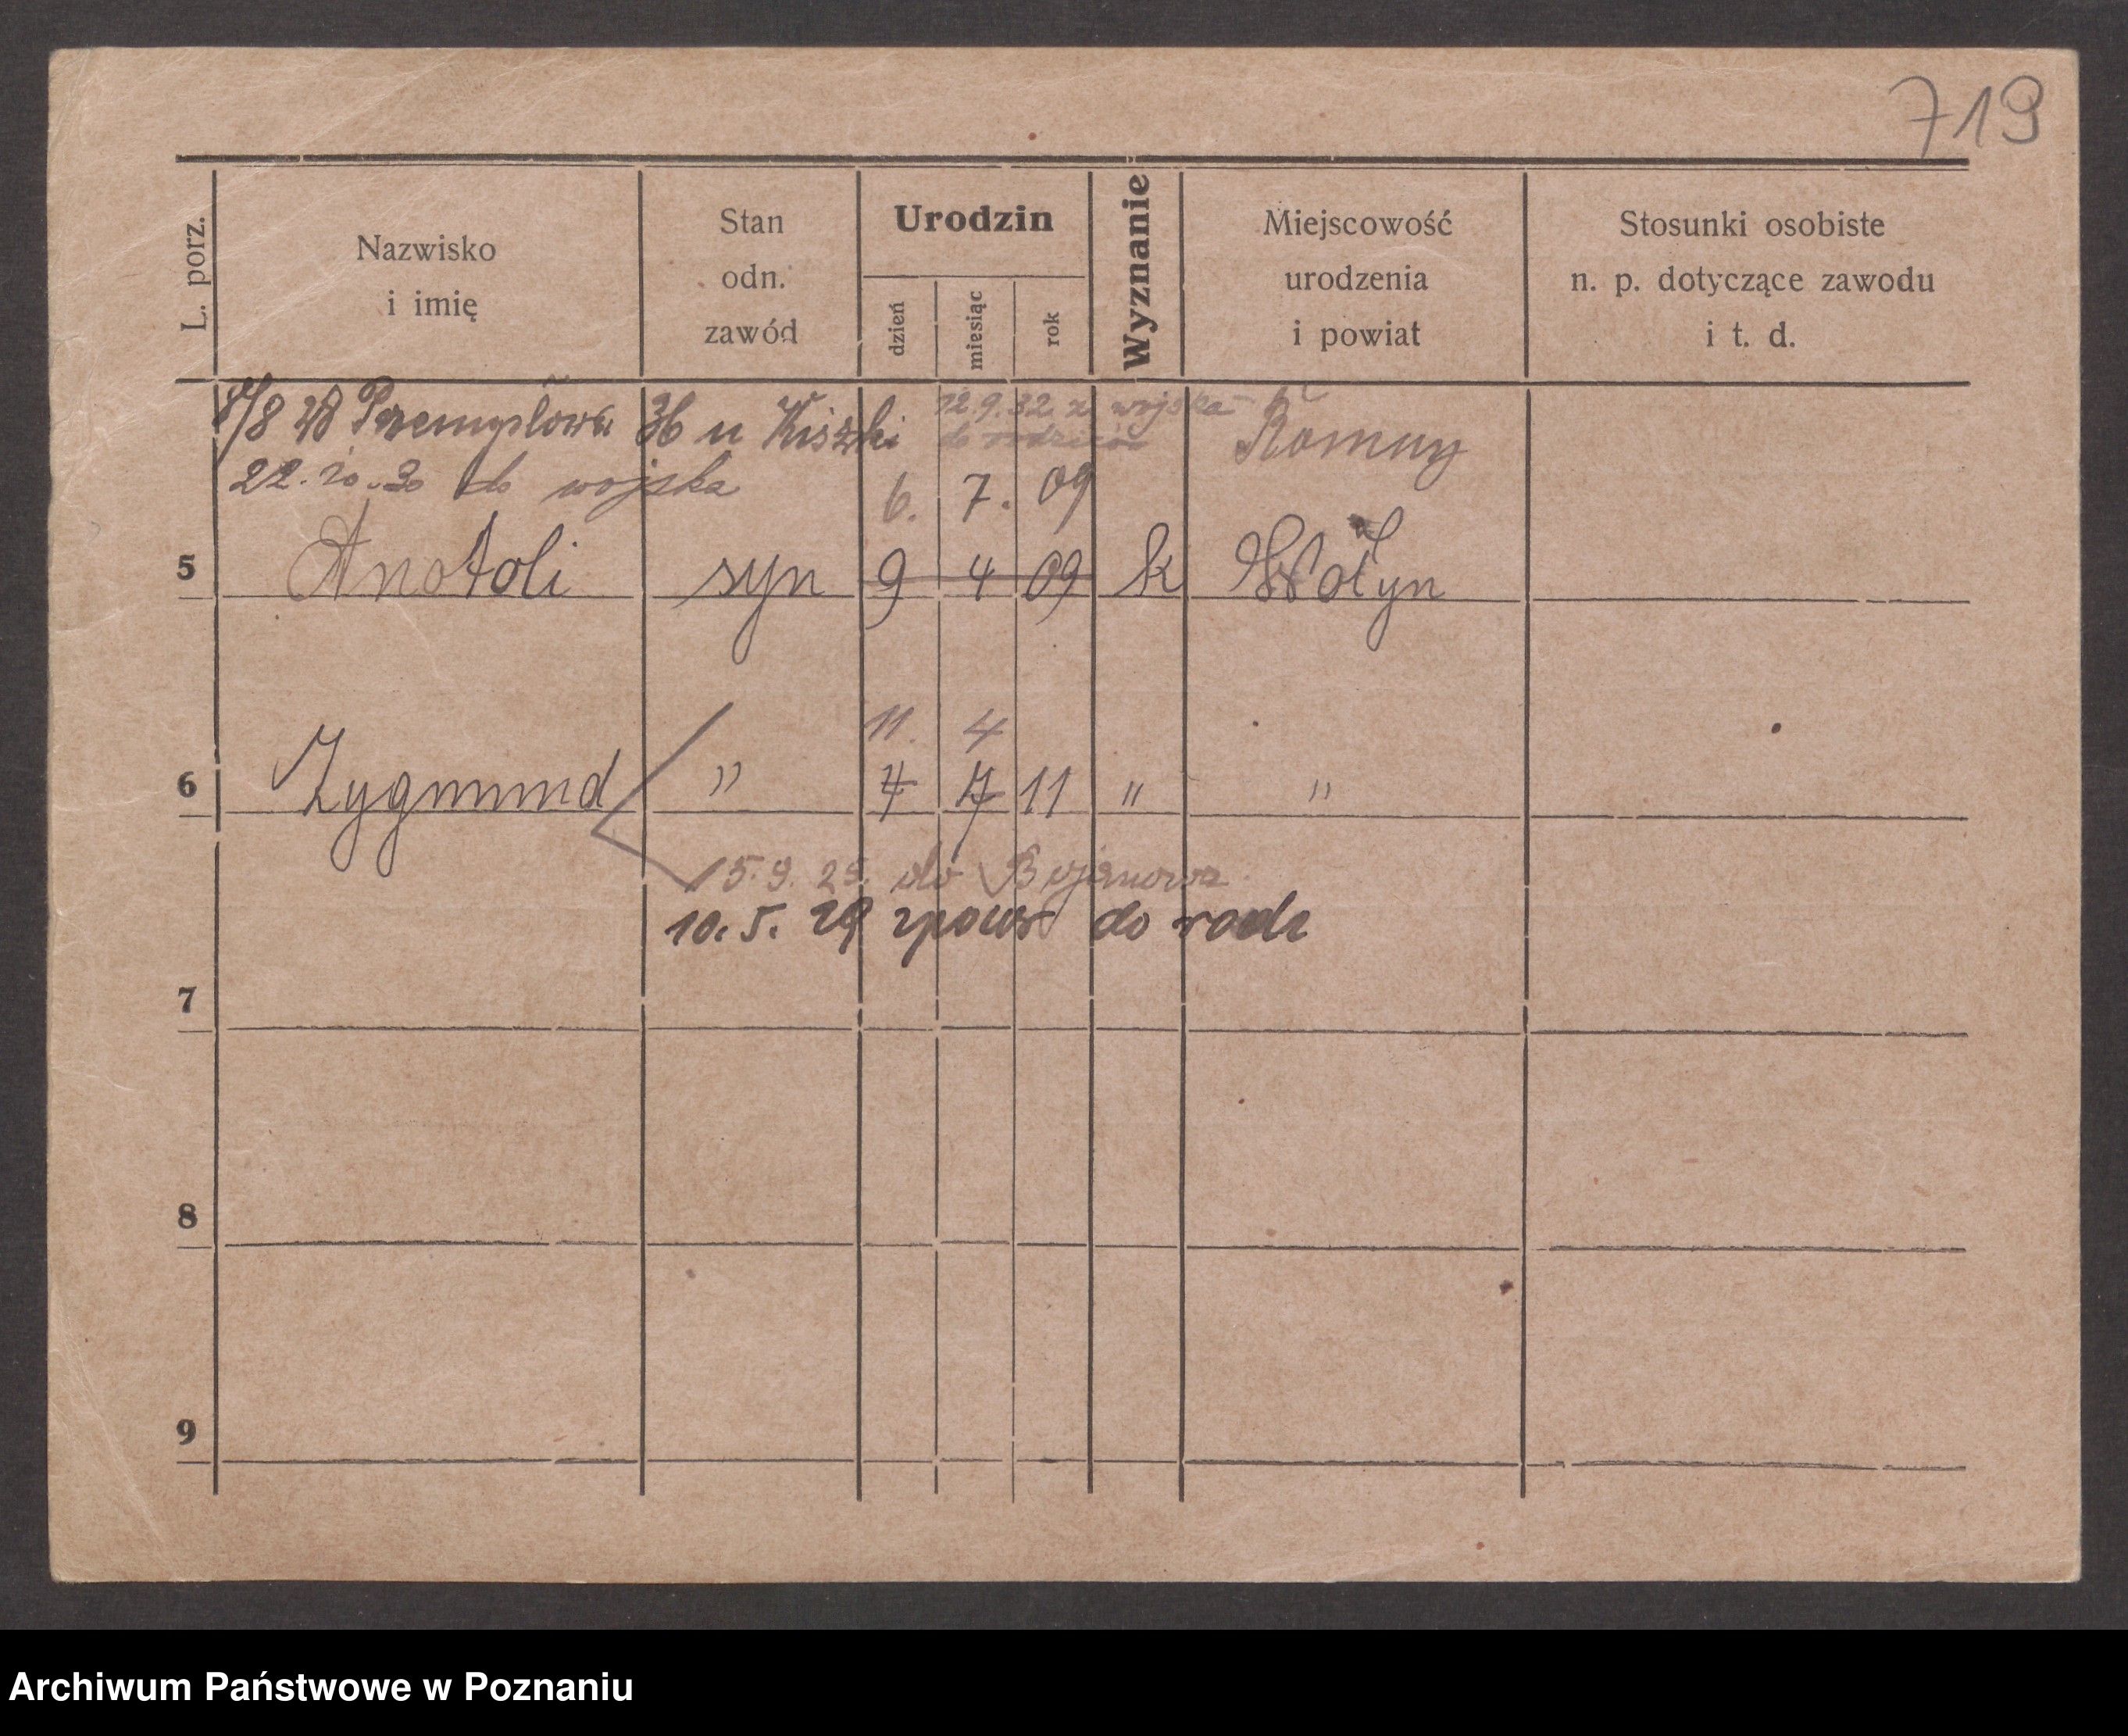 719
L. porz.
Nazwisko
i imię
Stan
odn.
zawód
Urodzin
dzień
miesiąc
rok
Wyznanie
Miejscowość
urodzenia
i powiat
Stosunki osobiste
n. p. dotyczące zawodu
i t. d.
8/8 28 Przemysłowa 36 u Kiszki
12.9.32 z wojska
do rodziców
22.10.30 do wojska
6. 7. 09
Romny
5 Anatoli syn 9 4 09 k Wołyn
11. 4
6 Zygmund " 4 7 11 " "
15.9.25. do Bojanowa
10.5.29 do rodz
7
8
9
Archiwum Państwowe w Poznaniu